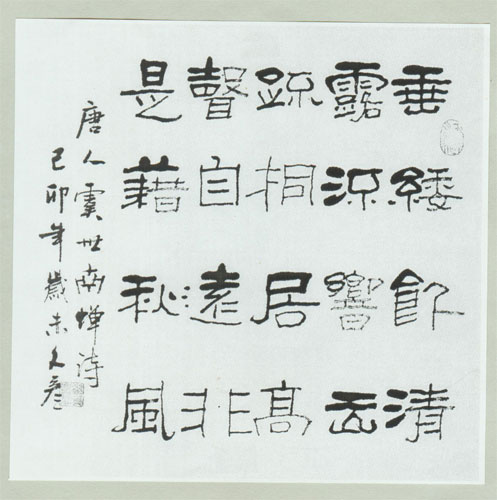 垂緌飲清
露流響出
疏桐居高
聲自遠非
是藉秋風
唐人虞世南蝉诗
己卯年歲末